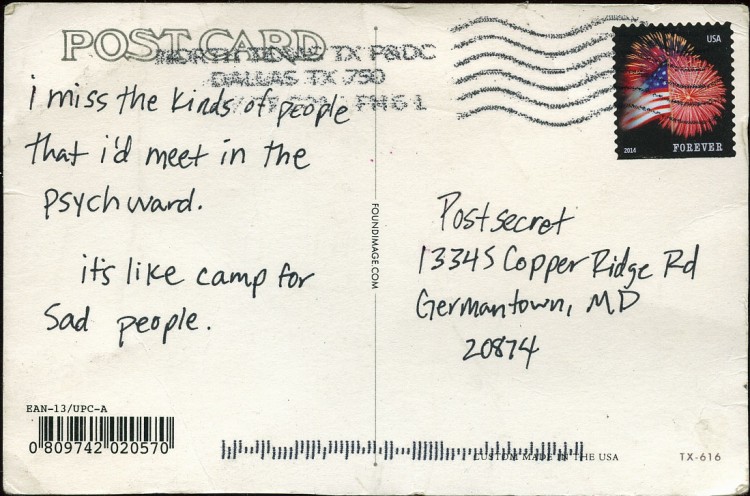 POST CARD
NORTH TEXAS TX P&DC
DALLAS TX 750
FM61
USA
2014 FOREVER
i miss the kinds of people
that i'd meet in the
psych ward.
it's like camp for
sad people.
FOUNDIMAGE.COM
Postsecret
13345 Copper Ridge Rd
Germantown, MD
20874
EAN-13/UPC-A
0 809742 020570
CUSTOM MADE IN THE USA
TX-616